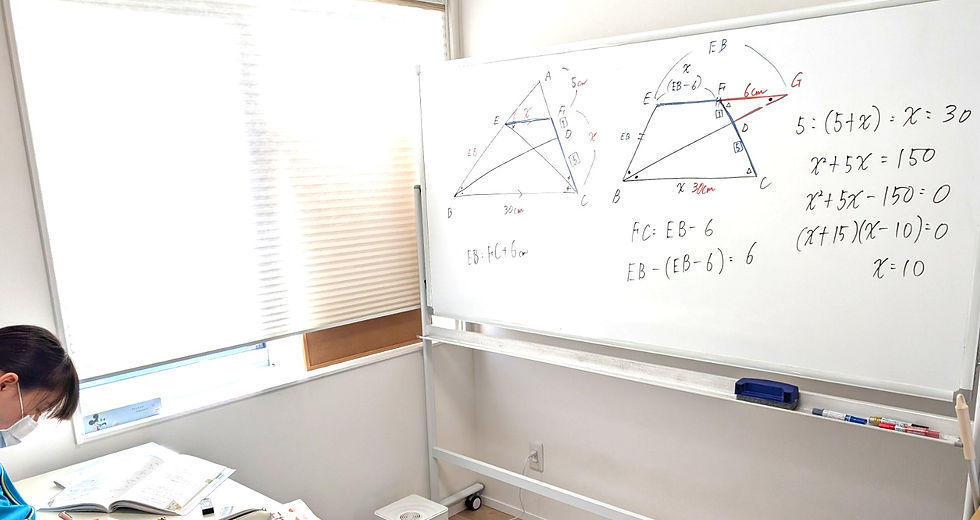 A
5cm
F
x
E
1
D
x
EB
5
B
30cm
C
EB=FC+6cm
EB
x
(EB-6)
F
6cm
G
E
1
D
EB
5
B
x 30cm
C
FC=EB-6
EB-(EB-6)=6
5:(5+x)=x:30
x²+5x=150
x²+5x-150=0
(x+15)(x-10)=0
x=10